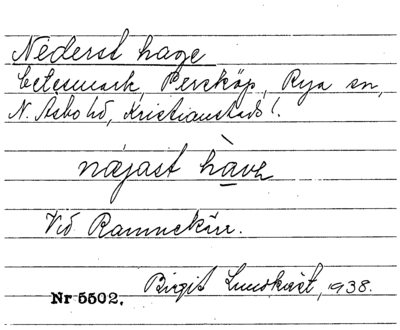 Nederst hage
betesmark, Perstorp, Rya sn,
N. Åsbo hd, Kristianstads l.
næjast hàvə
Vid Ramnekärr.
Birgit Lundkvist, 1938.
Nr 5502.